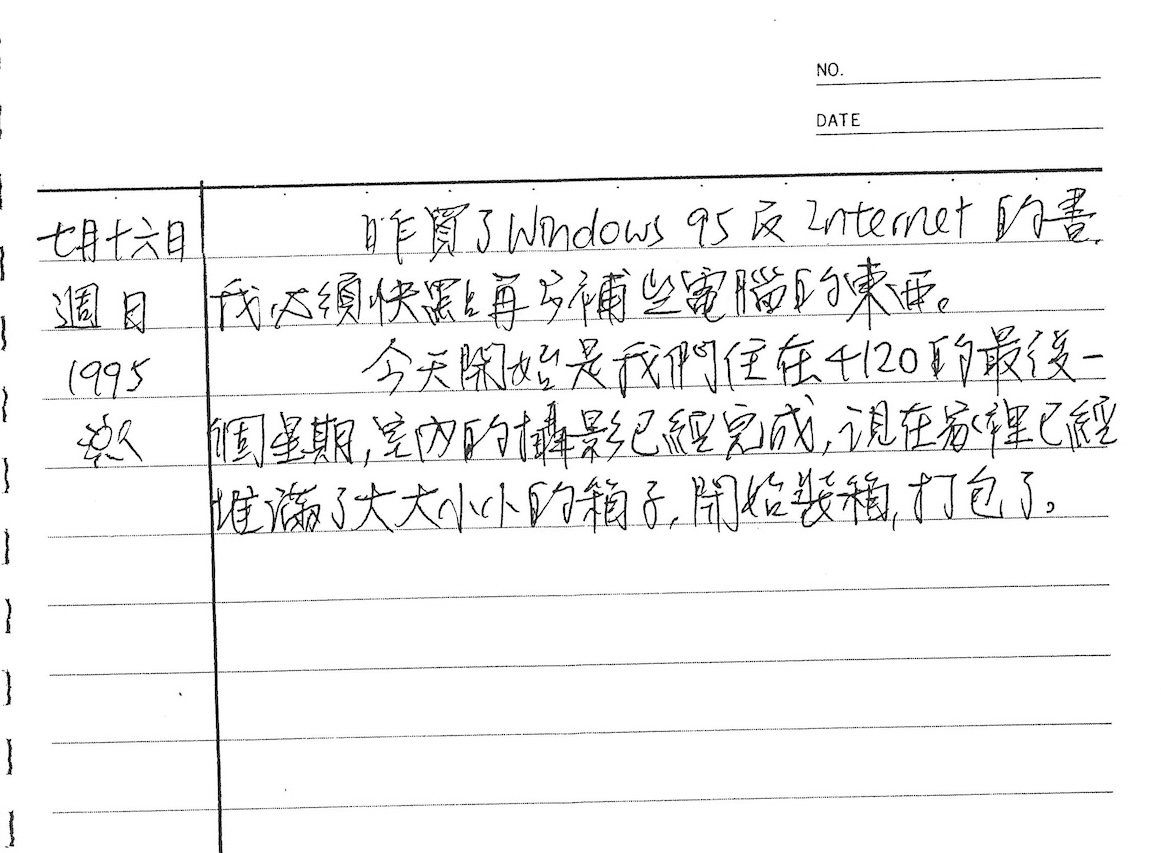 NO.
DATE
七月十六日
週日
1995
昨買了Windows 95及Internet的書.
我必須快點再多補些電腦的東西。
今天開始是我們住在4120的最後一
個星期,室內的攝影已經完成,現在家裡已經
堆滿了大大小小的箱子,開始裝箱,打包了。